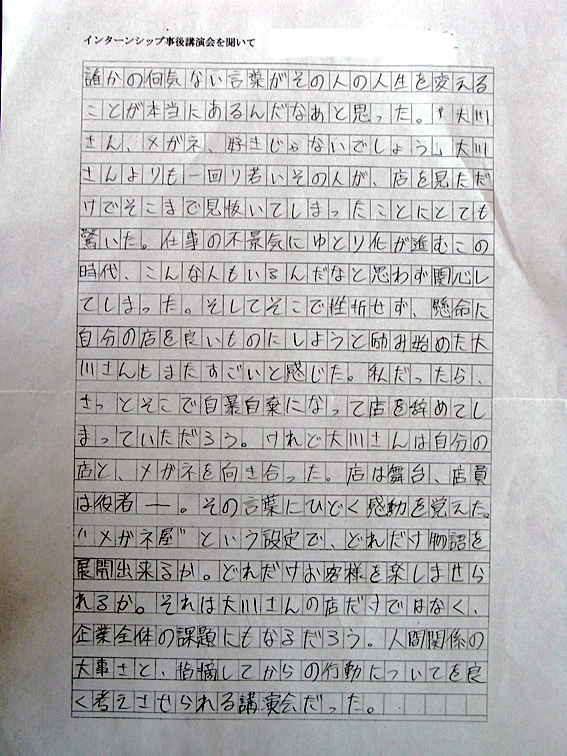 インターンシップ事後講演会を聞いて
誰かの何気ない言葉がその人の人生を変える
ことが本当にあるんだなあと思った。『大川
さん、メガネ、好きじゃないでしょう』大川
さんよりも一回り若いその人が、店を見ただ
けでそこまで見抜いてしまったことにとても
驚いた。仕事の不景気にゆとり化が進むこの
時代、こんな人もいるんだなと思わず関心し
てしまった。そしてそこで挫折せず、懸命に
自分の店を良いものにしようと励み始めた大
川さんもまたすごいと感じた。私だったら、
きっとそこで自暴自棄になって店を辞めてし
まっていただろう。けれど大川さんは自分の
店と、メガネを向き合った。店は舞台、店員
は役者―。その言葉にひどく感動を覚えた。
〝メガネ屋〟という設定で、どれだけ物語を
展開出来るか。どれだけお客様を楽しませら
れるか。それは大川さんの店だけではなく、
企業全体の課題にもなるだろう。人間関係の
大事さと、指摘してからの行動についてを良
く考えさせられる講演会だった。